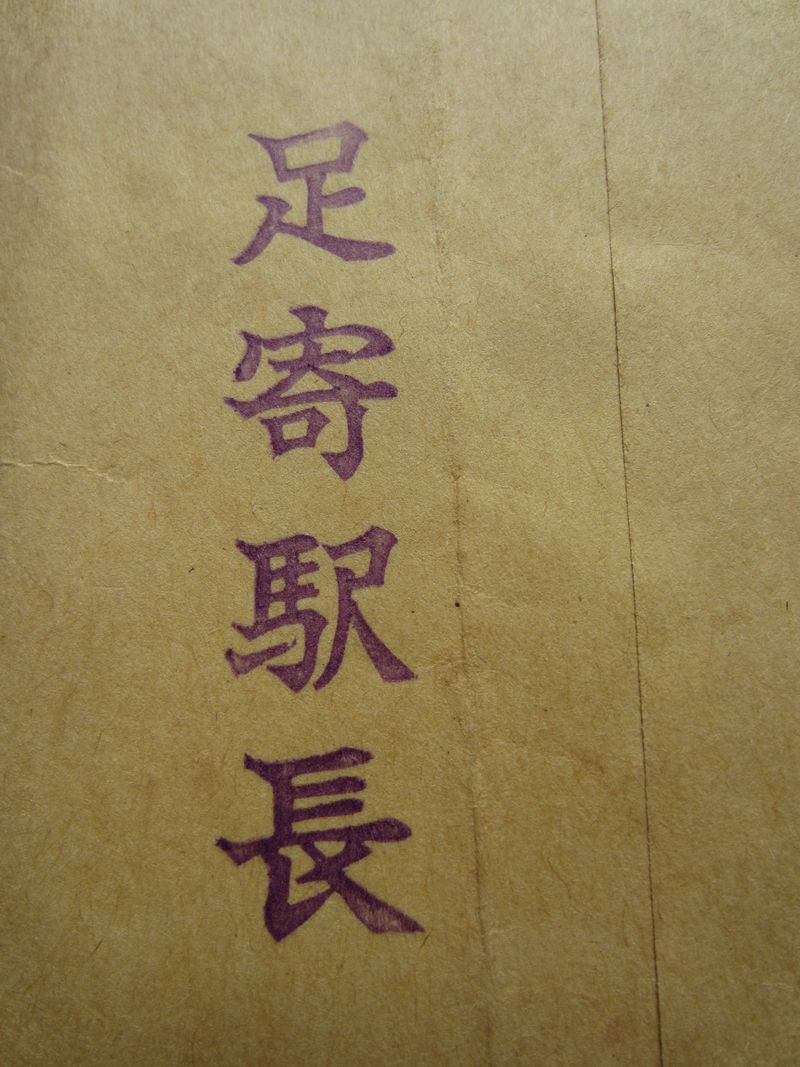 足寄駅長